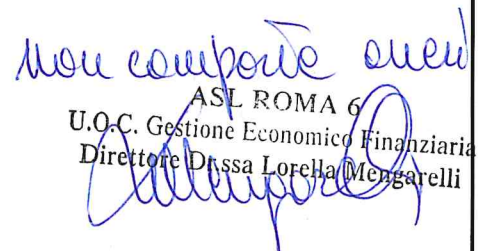 non comporta oneri
ASL ROMA 6
U.O.C. Gestione Economico Finanziaria
Direttore Dr.ssa Lorella Mengarelli